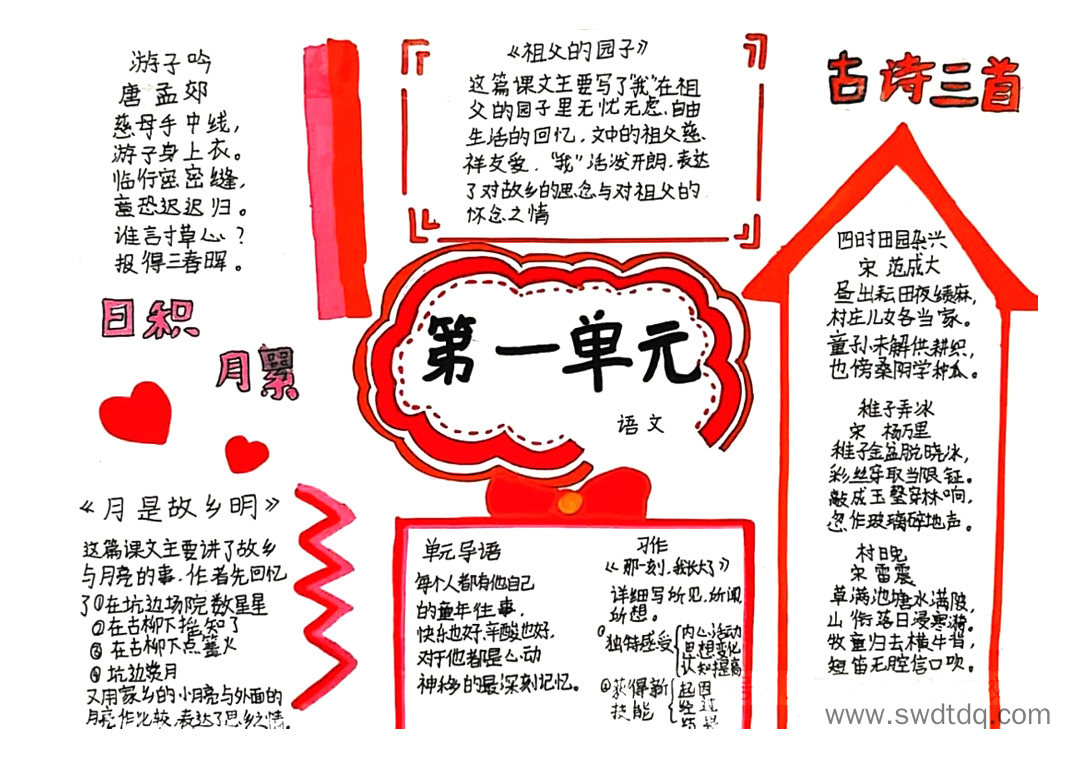 游子吟
唐 孟郊
慈母手中线，
游子身上衣。
临行密密缝，
意恐迟迟归。
谁言寸草心？
报得三春晖。
日积
月累
《月是故乡明》
这篇课文主要讲了故乡
与月亮的事.作者先回忆
了①在坑边场院数星星
②在古柳下摇知了
③在古柳下点篝火
④坑边赏月
又用家乡的小月亮与外面的
月亮作比较,表达了思乡之情.
《祖父的园子》
这篇课文主要写了"我"在祖
父的园子里无忧无虑.自由
生活的回忆,文中的祖父慈.
祥友爱."我"活泼开朗.表达
了对故乡的思念与对祖父的
怀念之情
第一单元
语文
单元导语
每个人都有他自己
的童年往事.
快乐也好,辛酸也好,
对于他都是心动
神移的最深刻记忆。
习作
《那一刻.我长大了》
详细写所见.所闻
所想.
①独特感受
内心活动
思想变化
认知提高
②获得新
技能
起因
经过
古诗三首
四时田园杂兴
宋 范成大
昼出耘田夜绩麻,
村庄儿女各当家。
童孙未解供耕织,
也傍桑阴学种瓜。
稚子弄冰
宋 杨万里
稚子金盆脱晓冰,
彩丝穿取当银钲。
敲成玉磬穿林响,
忽作玻璃碎地声。
村晚
宋 雷震
草满池塘水满陂,
山衔落日浸寒漪。
牧童归去横牛背,
短笛无腔信口吹。
www.swdtdq.com